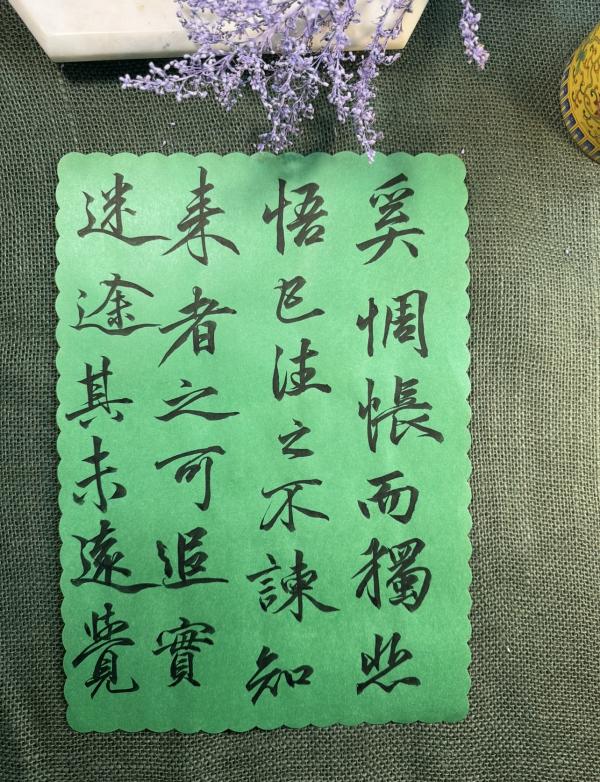 奚惆悵而獨悲
悟已往之不諫知
来者之可追實
迷途其未遠覺